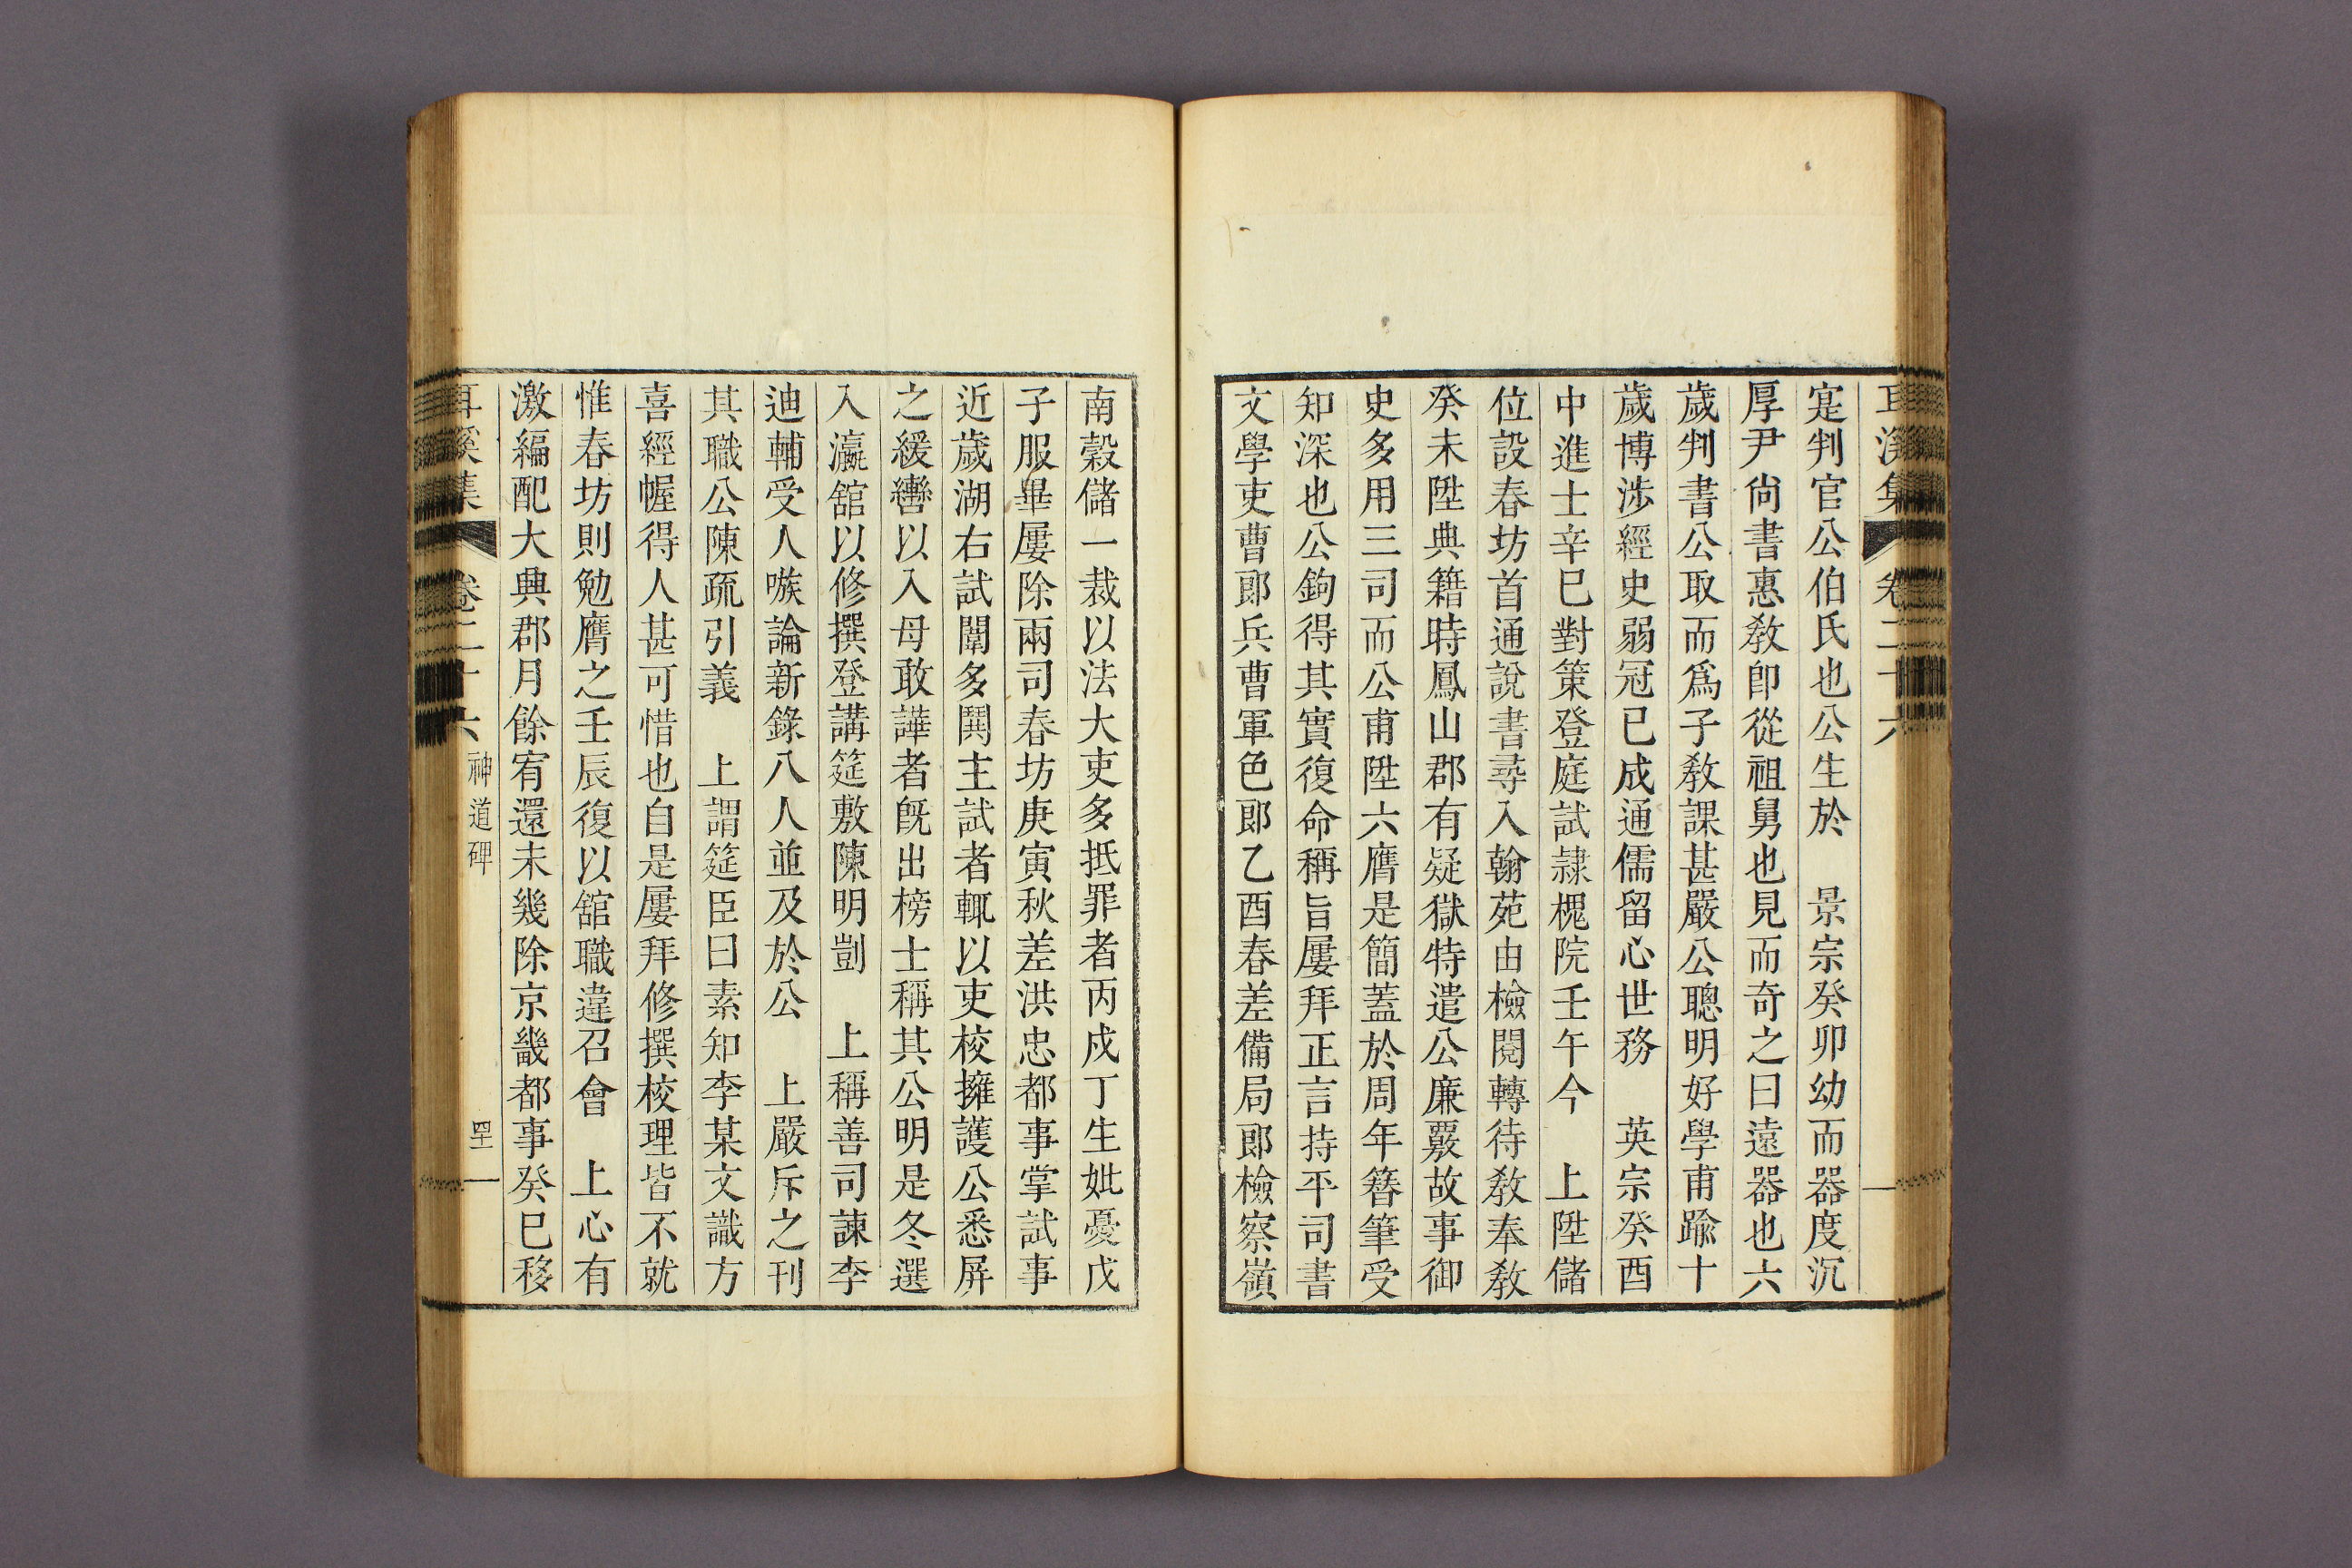 耳溪集 卷二十六
寔判官公伯氏也公生於 景宗癸卯幼而器度沉
厚尹尙書惠敎卽從祖舅也見而奇之曰遠器也六
歲判書公取而爲子敎課甚嚴公聰明好學甫踰十
歲博涉經史弱冠已成通儒留心世務 英宗癸酉
中進士辛巳對策登庭試隷槐院壬午今 上陞儲
位設春坊首通說書尋入翰苑由檢閱轉待敎奉敎
癸未陞典籍時鳳山郡有疑獄特遣公廉覈故事御
史多用三司而公甫陞六膺是簡蓋於周年簪筆受
知深也公鉤得其實復命稱旨屢拜正言持平司書
文學吏曹郞兵曹軍色郞乙酉春差備局郞檢察嶺
南穀儲一裁以法大吏多抵罪者丙戌丁生妣憂戊
子服畢屢除兩司春坊庚寅秋差洪忠都事掌試事
近歲湖右試闈多鬨主試者輒以吏校擁護公悉屛
之緩轡以入母敢譁者旣出榜士稱其公明是冬選
入瀛舘以修撰登講筵敷陳明剴 上稱善司諫李
迪輔受人嗾論新錄八人並及於公 上嚴斥之刊
其職公陳疏引義 上謂筵臣曰素知李某文識方
喜經幄得人甚可惜也自是屢拜修撰校理皆不就
惟春坊則勉膺之壬辰復以舘職違召會 上心有
激編配大興郡月餘宥還未幾除京畿都事癸巳移
耳溪集 卷二十六 神道碑 四十一